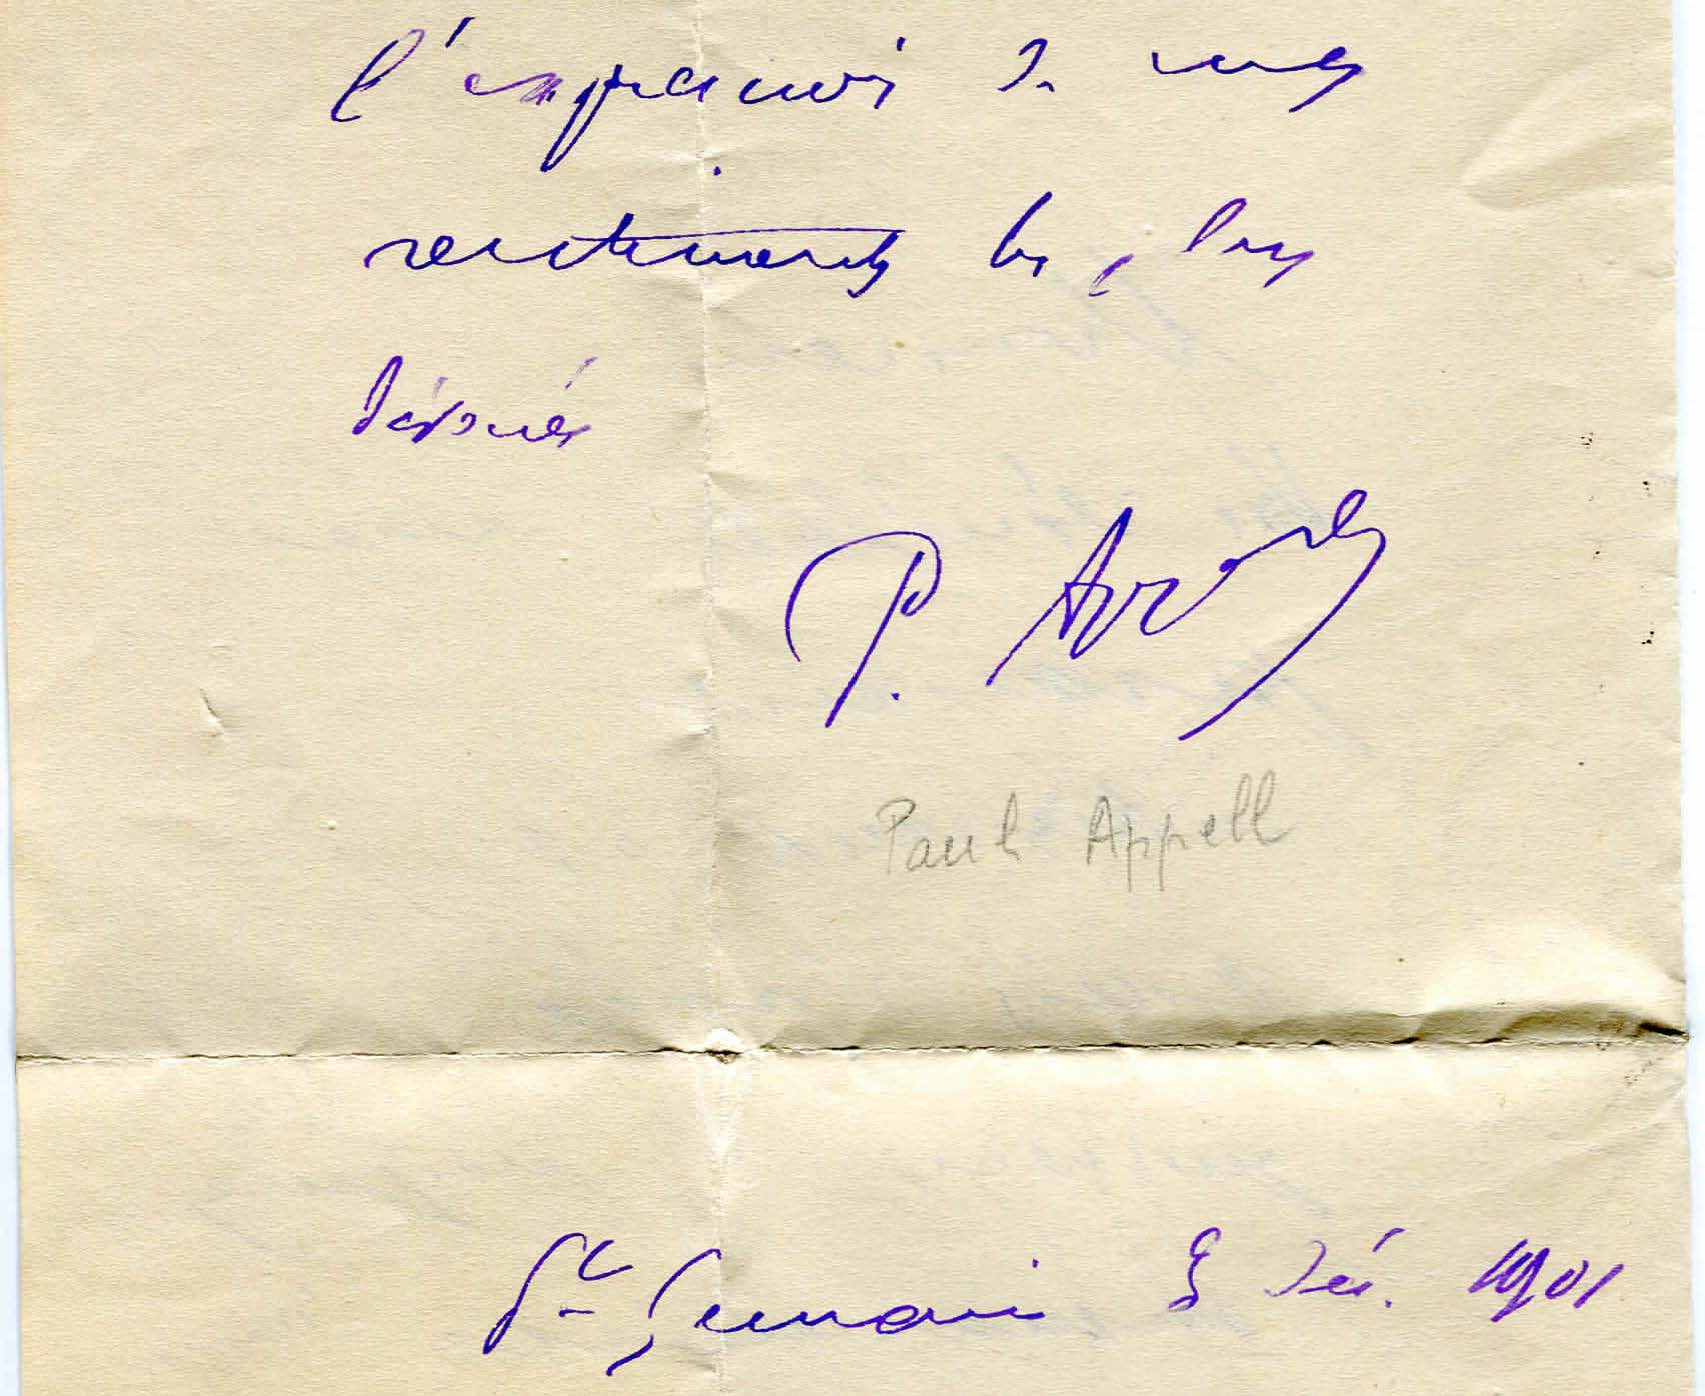 l'expression de mes
sentiments les plus
dévoués
P. Appell
Paul Appell
St Germain 8 Déc. 1901